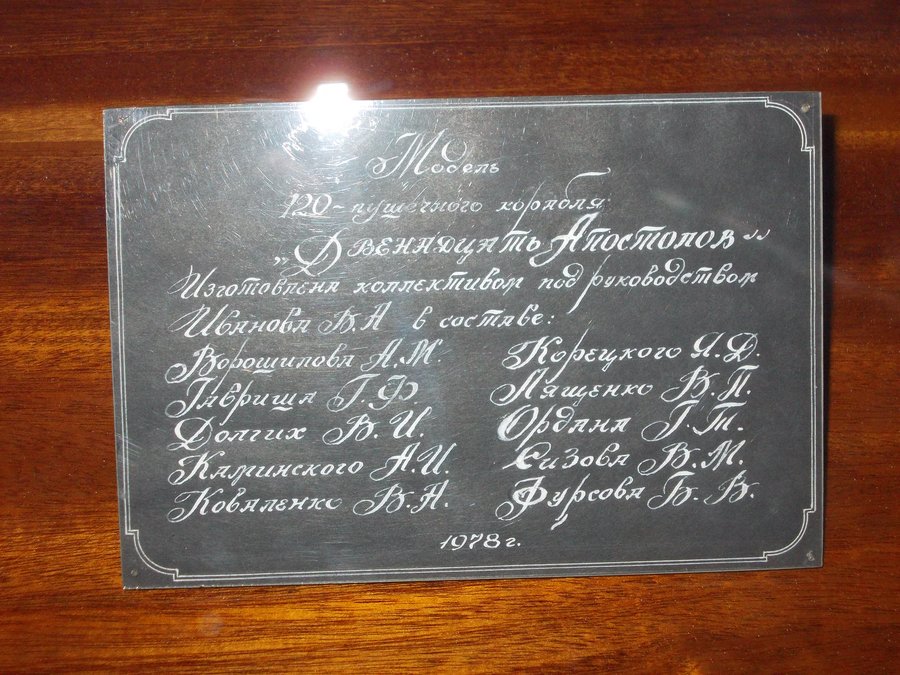 Модель
120-пушечного корабля
„Двенадцать Апостолов"
Изготовлена коллективом под руководством
Иванова В.А в составе:
Ворошилова А.М. Корецкого Я.Д.
Гавриша Г.Ф Лященко В.П.
Долгих В.И. Ордана Г.Т.
Каминского А.И. Сизова В.М.
Коваленко В.А. Фурсова Б.В.
1978г.